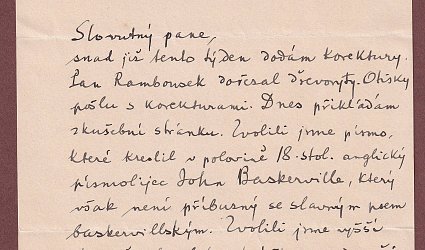 Slovutný pane,
snad již tento týden dodám korektury.
Pan Rambousek dořezal dřevoryty. Otisky
pošlu s korekturami. Dnes přikládám
zkušební stránku. Zvolili jsme písmo,
které kreslil v polovině 18. stol. anglický
písmolijec John Baskerville, který
však není příbuzný se slavným psem
baskervillským. Zvolili jsme vyšší